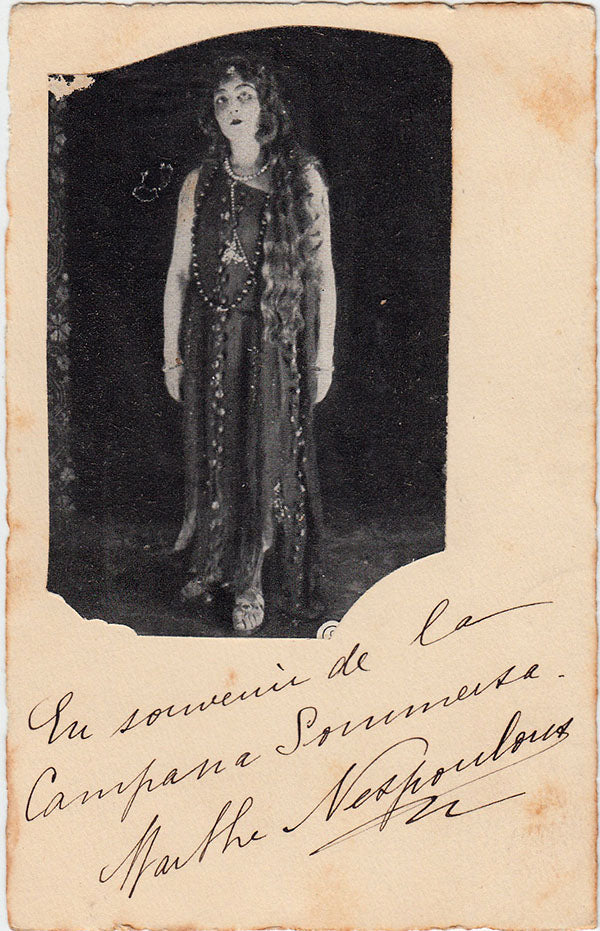 En souvenir de la
Campana Sommersa.
Marthe Nespoulous